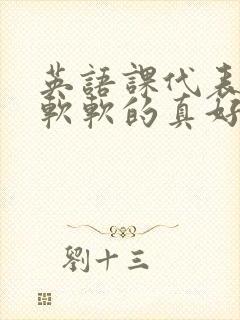 英語課代表
軟軟的真好
劉十三